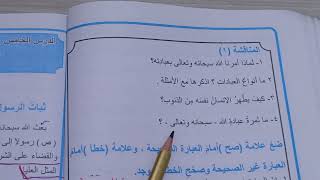 الدرس الخامس
المناقشة (١)
١- لماذا أمرنا الله سبحانه وتعالى بعبادته؟
٢- ما أنواع العبادات ؟ اذكرها مع الأمثلة .
٣- كيف يطهر الإنسان نفسه من الذنوب؟
٤- ما ثمرة عبادة الله - سبحانه وتعالى - ؟
ضع علامة (صح ) أمام العبارة الصحيحة ، وعلامة (خطأ )أمام
العبارة غير الصحيحة وصحح الخطأ
ثبات الرسول
بعث الله
(ص ) رسولا إلى
والقضاء على
المثل العليا